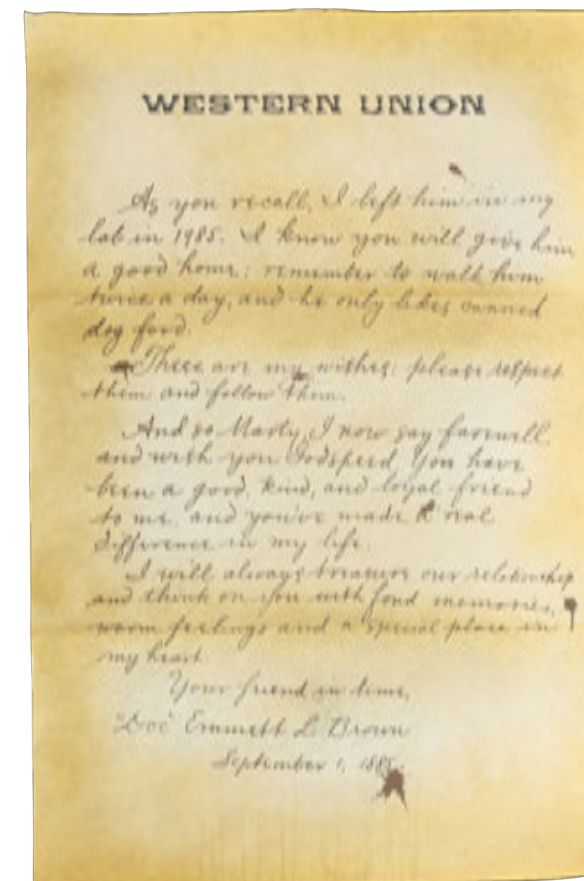 WESTERN UNION
As you recall, I left him in my
lab in 1985. I know you will give him
a good home: remember to walk him
twice a day, and he only likes canned
dog food.
These are my wishes: please respect
them and follow them.
And so Marty, I now say farewell
and wish you Godspeed. You have
been a good, kind, and loyal friend
to me, and you've made a real
difference in my life.
I will always treasure our relationship
and think on you with fond memories,
warm feelings and a special place in
my heart.
Your friend in time,
"Doc" Emmett L. Brown
September 1, 1885.